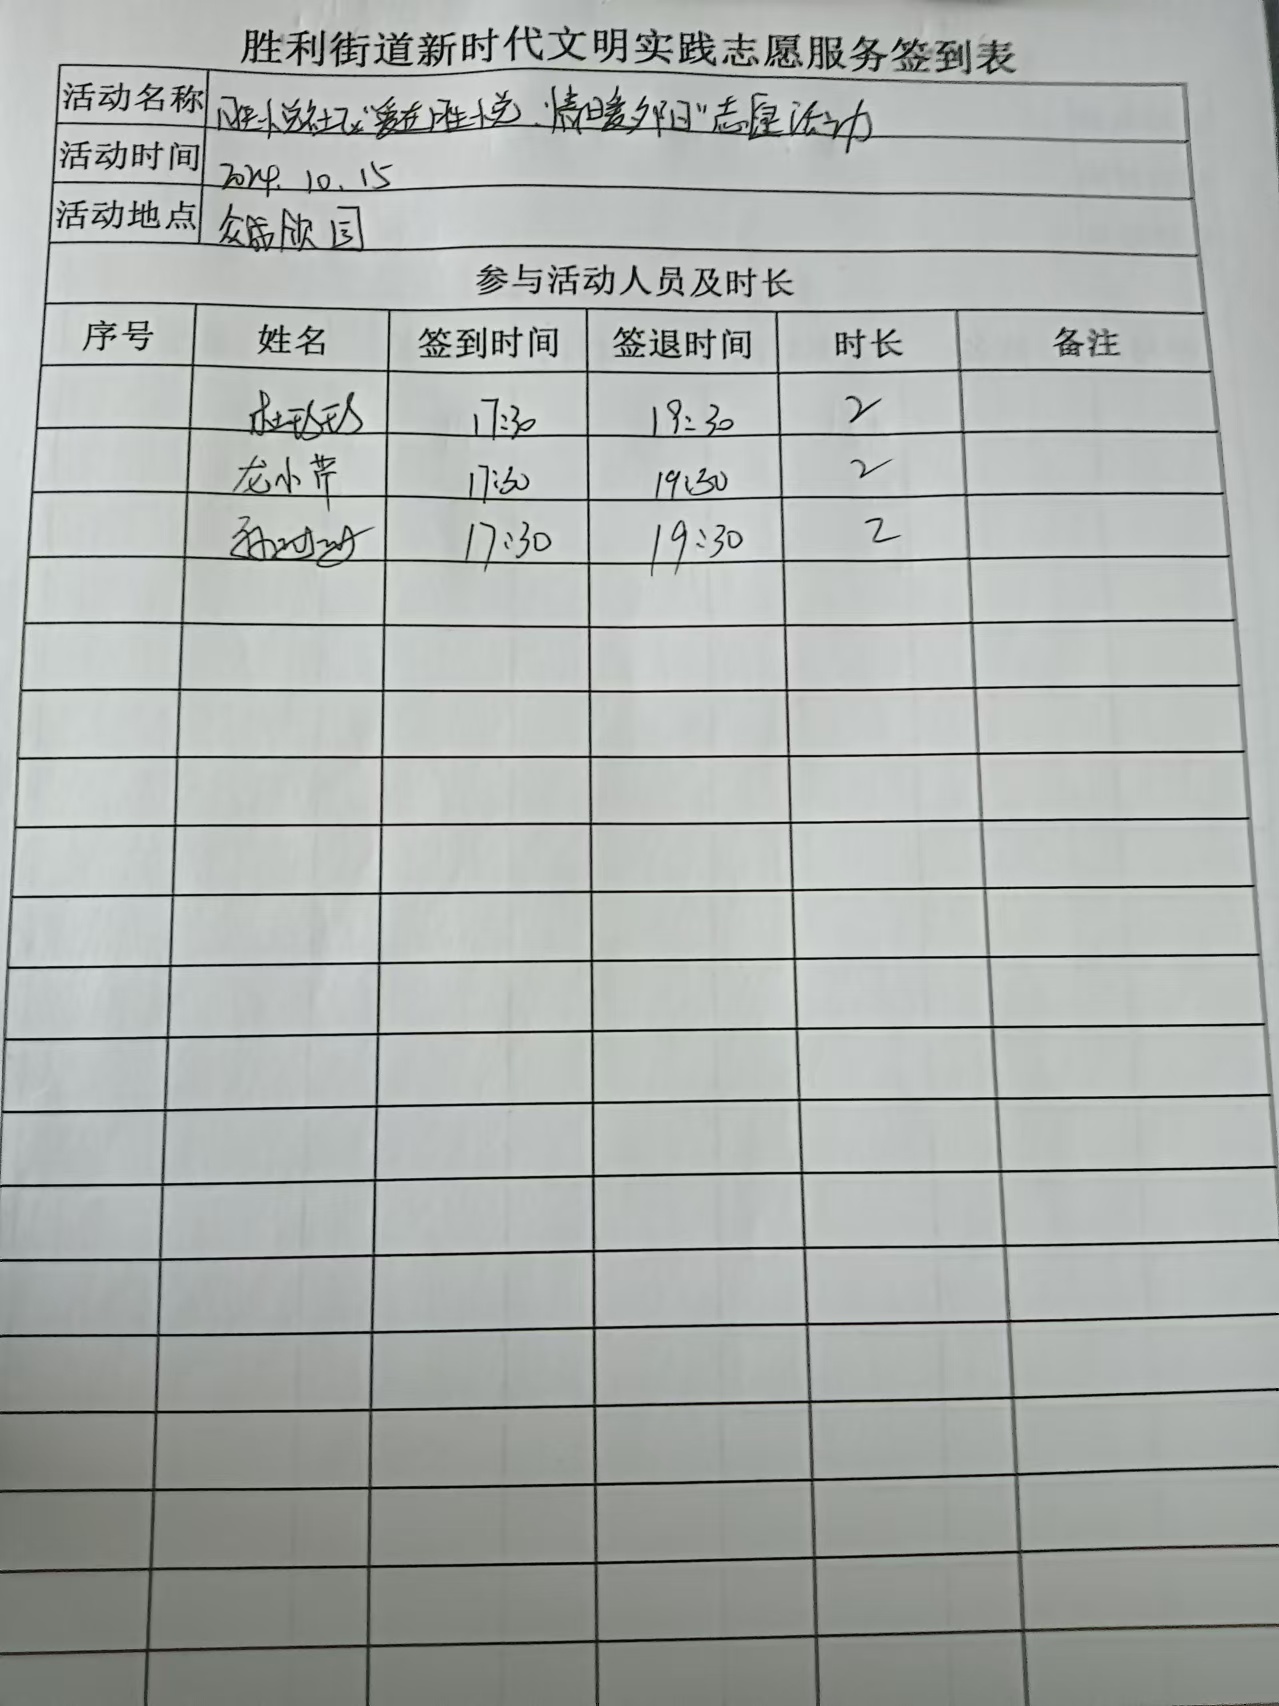 胜利街道新时代文明实践志愿服务签到表
活动名称 胜悦社区"爱在胜悦、情暖夕阳"志愿活动
活动时间 2024.10.15
活动地点 欣园
参与活动人员及时长
序号 姓名 签到时间 签退时间 时长 备注
杜彤彤 17:30 19:30 2
龙小芹 17:30 19:30 2
17:30 19:30 2